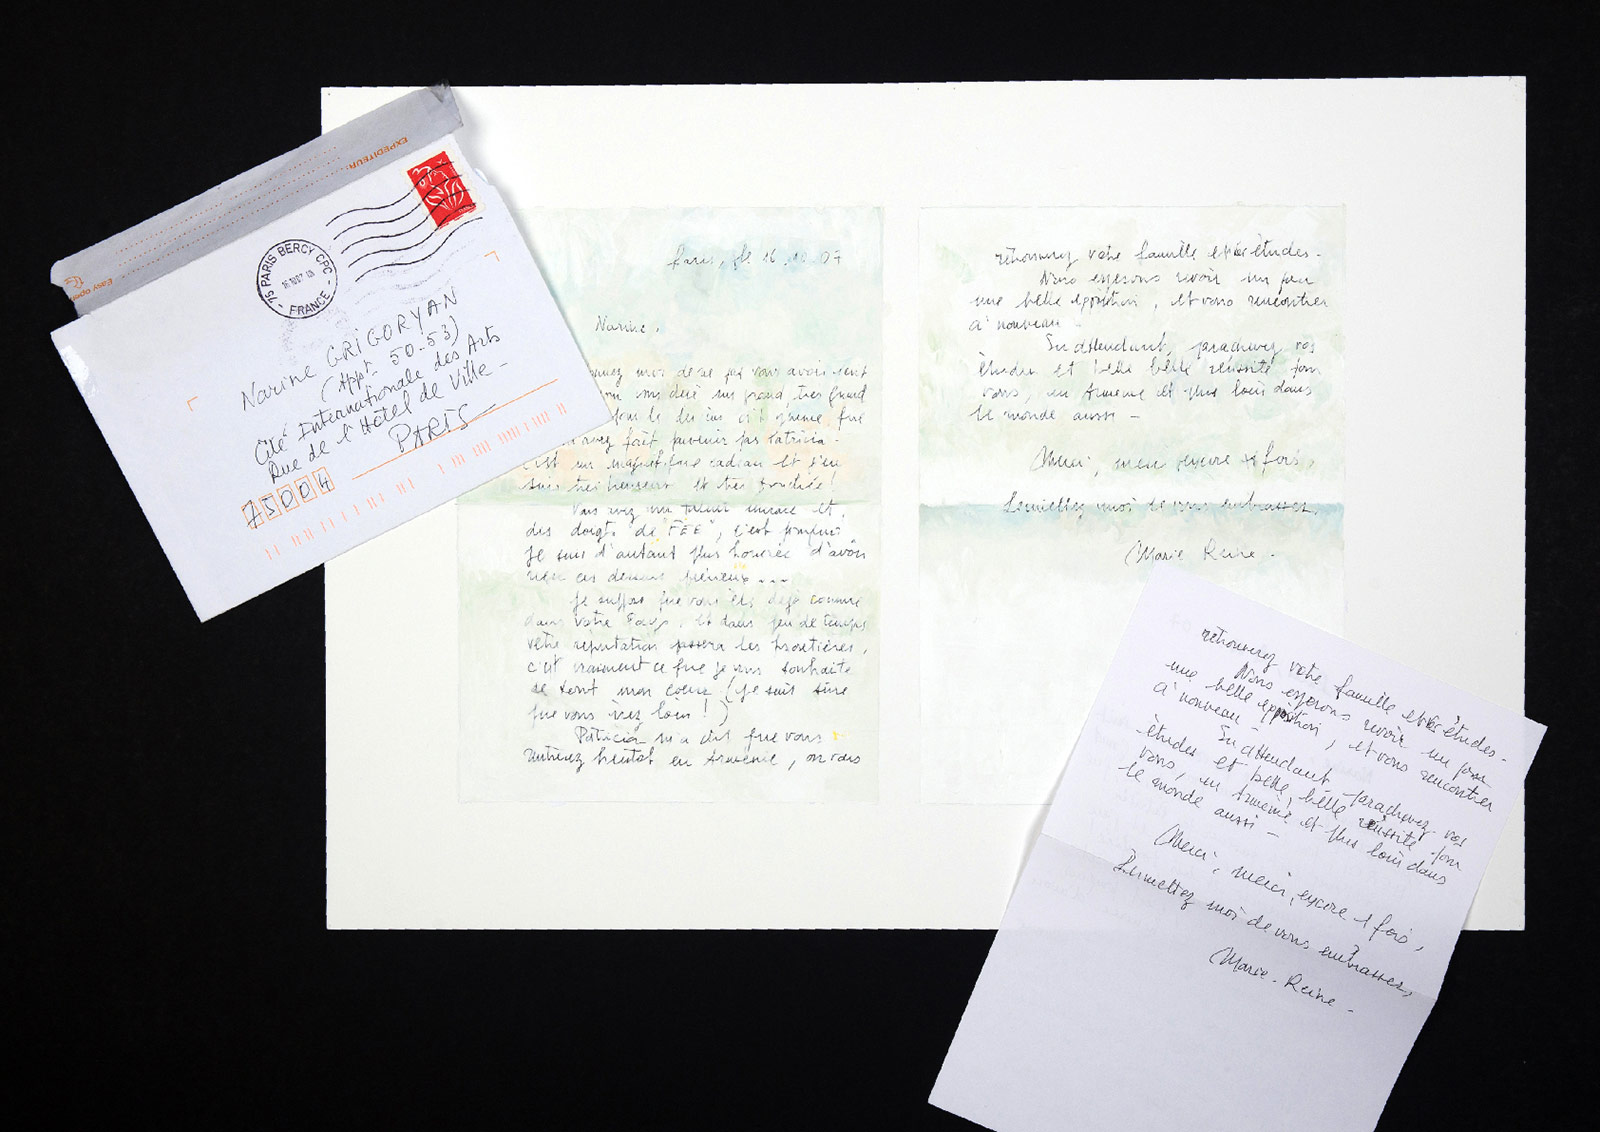 EXPEDITEUR:
Easy open
75 PARIS BERCY CPC
16.10.07
FRANCE
Narine GRIGORYAN
(Appt. 50-53)
Cité Internationale des Arts
Rue de l'Hôtel de Ville -
PARIS
75004
Paris, le 16.10.07
Narine,
moi de ne pas vous avoir
un grand, très grand
avez fait parvenir par Patricia -
c'est un magnifique cadeau et j'en
suis très heureuse et très touchée!
Vous avez un talent et
des doigts "de FEE", c'est pourquoi
je suis d'autant plus honorée d'avoir
ces dessins précieux...
Je suppose que vous êtes déjà connue
dans votre Pays, et dans peu de temps
votre réputation passera les frontières,
c'est vraiment ce que je vous souhaite
de tout mon coeur (je suis sûre
que vous irez loin!)
Patricia m'a dit que vous
rentriez bientôt en Arménie, où vous
retrouverez votre famille et vos études -
Nous espérons revoir un jour
une belle exposition, et vous rencontrer
à nouveau -
En attendant, parachevez vos
études et belle, belle réussite pour
vous, en Arménie et plus loin dans
le monde aussi -
Merci, merci encore 1 fois,
Permettez moi de vous embrasser,
Marie Reine -
retrouverez votre famille et vos études -
Nous espérons revoir un jour
une belle exposition, et vous rencontrer
à nouveau -
En attendant, parachevez vos
études et belle, belle réussite pour
vous, en Arménie et plus loin dans
le monde aussi -
Merci, merci, encore 1 fois,
Permettez moi de vous embrasser,
Marie-Reine -